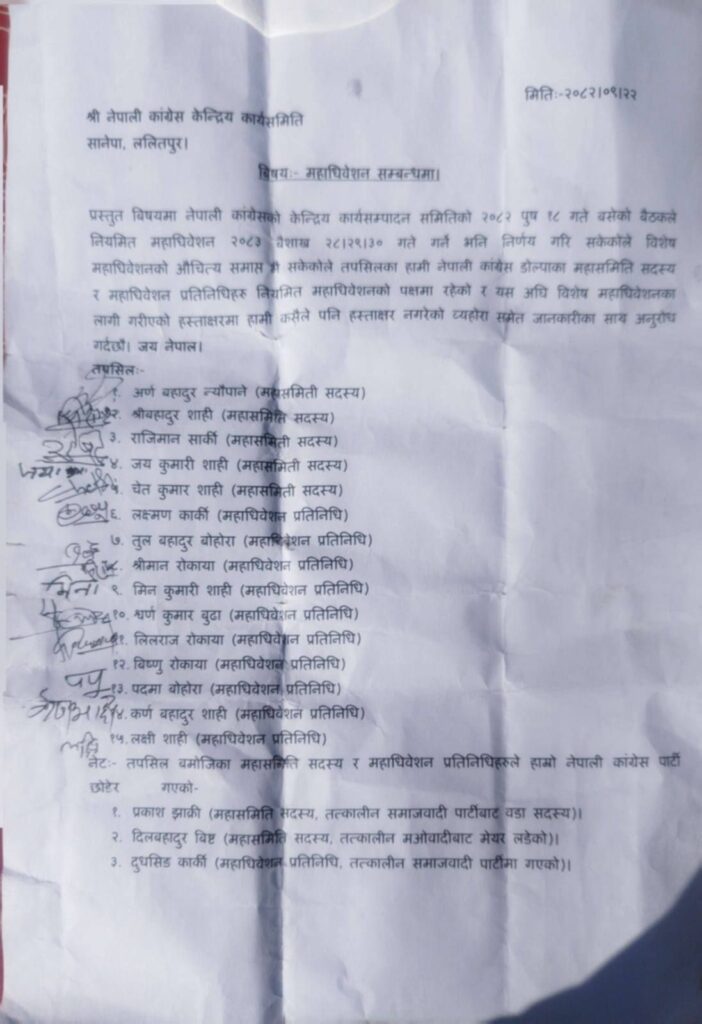 मितिः-२०८२।०९।२२
श्री नेपाली कांग्रेस केन्द्रिय कार्यसमिति
सानेपा, ललितपुर।
बिषयः- महाधिवेशन सम्बन्धमा।
प्रस्तुत बिषयमा नेपाली कांग्रेसको केन्द्रिय कार्यसम्पादन समितिको २०८२ पुष १८ गते बसेको बैठकले
नियमित महाधिवेशन २०८३ बैशाख २८।२९।३० गते गर्ने भनि निर्णय गरि सकेकोले विशेष
महाधिवेशनको औचित्य समाप्त भै सकेकोले तपसिलका हामी नेपाली कांग्रेस डोल्पाका महासमिति सदस्य
र महाधिवेशन प्रतिनिधिहरु नियमित महाधिवेशनको पक्षमा रहेको र यस अघि विशेष महाधिवेशनका
लागी गरीएको हस्ताक्षरमा हामी कसैले पनि हस्ताक्षर नगरेको व्यहोरा समेत जानकारीका साथ अनुरोध
गर्दछौ। जय नेपाल।
तपसिलः-
१. अर्ण बहादुर न्यौपाने (महासमिती सदस्य)
२. श्रीबहादुर शाही (महासमिति सदस्य)
३. राजिमान सार्की (महासमिती सदस्य)
४. जय कुमारी शाही (महासमिती सदस्य)
५. चेत कुमार शाही (महासमिती सदस्य)
६. लक्ष्मण कार्की (महाधिवेशन प्रतिनिधि)
७. तुल बहादुर बोहोरा (महाधिवेशन प्रतिनिधि)
८. श्रीमान रोकाया (महाधिवेशन प्रतिनिधि)
मिना ९. मिन कुमारी शाही (महाधिवेशन प्रतिनिधि)
१०. श्वर्ण कुमार बुढा (महाधिवेशन प्रतिनिधि)
११. लिलराज रोकाया (महाधिवेशन प्रतिनिधि)
१२. बिष्णु रोकाया (महाधिवेशन प्रतिनिधि)
१३. पदमा बोहोरा (महाधिवेशन प्रतिनिधि)
१४. कर्ण बहादुर शाही (महाधिवेशन प्रतिनिधि)
१५. लक्षी शाही (महाधिवेशन प्रतिनिधि)
नोटः- तपसिल बमोजिका महासमिति सदस्य र महाधिवेशन प्रतिनिधिहरुले हाम्रो नेपाली कांग्रेस पार्टी
छोडेर गएको-
१. प्रकाश झाक्री (महासमिति सदस्य, तत्कालीन समाजवादी पार्टीबाट वडा सदस्य)।
२. दिलबहादुर बिष्ट (महासमिति सदस्य, तत्कालीन मओवादीबाट मेयर लडेको)।
३. दुधसिङ कार्की (महाधिवेशन प्रतिनिधि, तत्कालीन समाजवादी पार्टीमा गएको)।